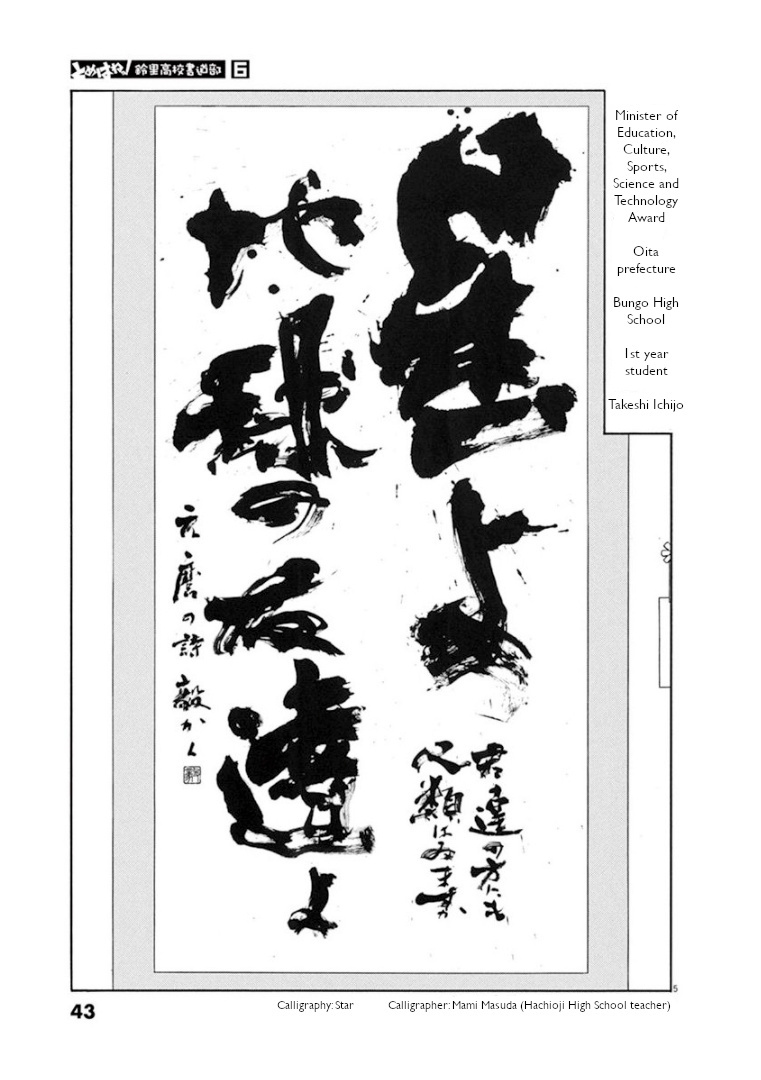 とめはねっ! 鈴里高校書道部 6
Minister of
Education,
Culture,
Sports,
Science and
Technology
Award
Oita
prefecture
Bungo High
School
1st year
student
Takeshi Ichijo
星よ
君達の方にも
人類はゐますか
地球の友達よ
元麿の詩 毅かく
5
43
Calligraphy: Star
Calligrapher: Mami Masuda (Hachioji High School teacher)